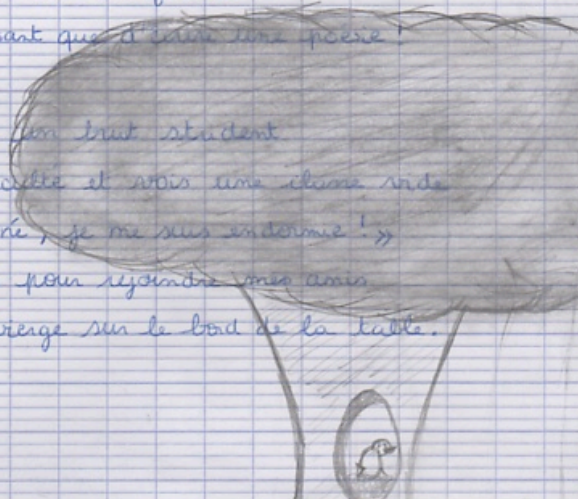 ant que d'écrire une poésie !
un bruit strident
et vois une
né, je me suis endormie ! »
pour rejoindre mes amis
vierge sur le bord de la table.